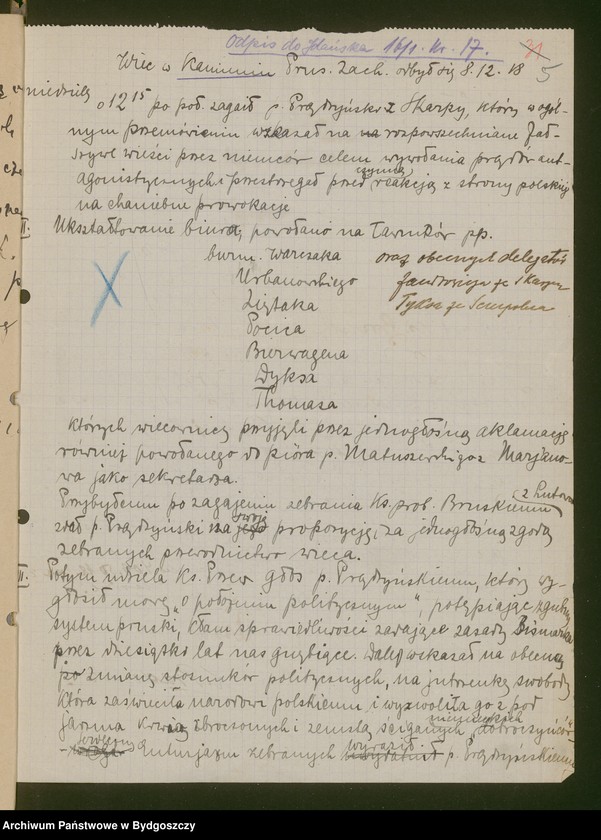 Odpis do Gdańska 16/1. Kr. 17.
31
5
Wiec w Kamieniu Prus. Zach. odbył się 8.12.18
w niedzielę
o 12 15 po poł. zagaił p. Prądzyński z Skarpy, który w ogól-
nym przemówieniu wskazał na rozpowszechniane fał-
szywe wieści przez niemców celem wywołania prądów ant-
agonistycznych i przestrzegał przed czynną reakcją z strony polskiej
na haniebne prowokacje
II.
Ukształtowanie biura, powołano na ławników pp.
burm. Warczaka
Urbanowskiego
Ziętaka
Pocica
Bierwagena
Dyksa
Thomasa
oraz obecnych delegatów
ze Skarpy
ze Sempolna
których wiecownicy przyjęli przez jednogłośną aklamację
również powołanego do pióra p. Matuszewskiego z Marjano-
wa jako sekretarza.
Przybyłemu po zagajeniu zebrania Ks. prob. Bruskiemu z Lutowa
zdał p. Prądzyński swoją propozycją, za jednogłośną zgodą
zebranych przewodnictwo wieca.
III.
Potym udziela Ks. Prew głos p. Prądzyńskiemu, który wy-
głosił mowę „o położeniu politycznym", potępiając zgubny
system pruski, kłam sprawiedliwości zadające zasady Bismarka
przez dziesiątki lat nas gnębiące. Dalej wskazał na obecną
po zmianę stosunków politycznych, na jutrzenkę swobody
która zaświeciła narodowi polskiemu i wyzwoliła go z pod
jarzma krwią zbroczonych i zemstą ściganych niemieckich „dobroczyńców"
Entuzjazm zebranych wyraził p. Prądzyńskiemu
Archiwum Państwowe w Bydgoszczy